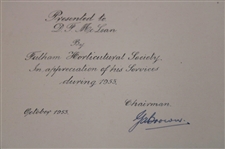 Presented to
D. P. McLean
By
Fulham Horticultural Society
In appreciation of his Services
during 1953.
Chairman
October 1953.